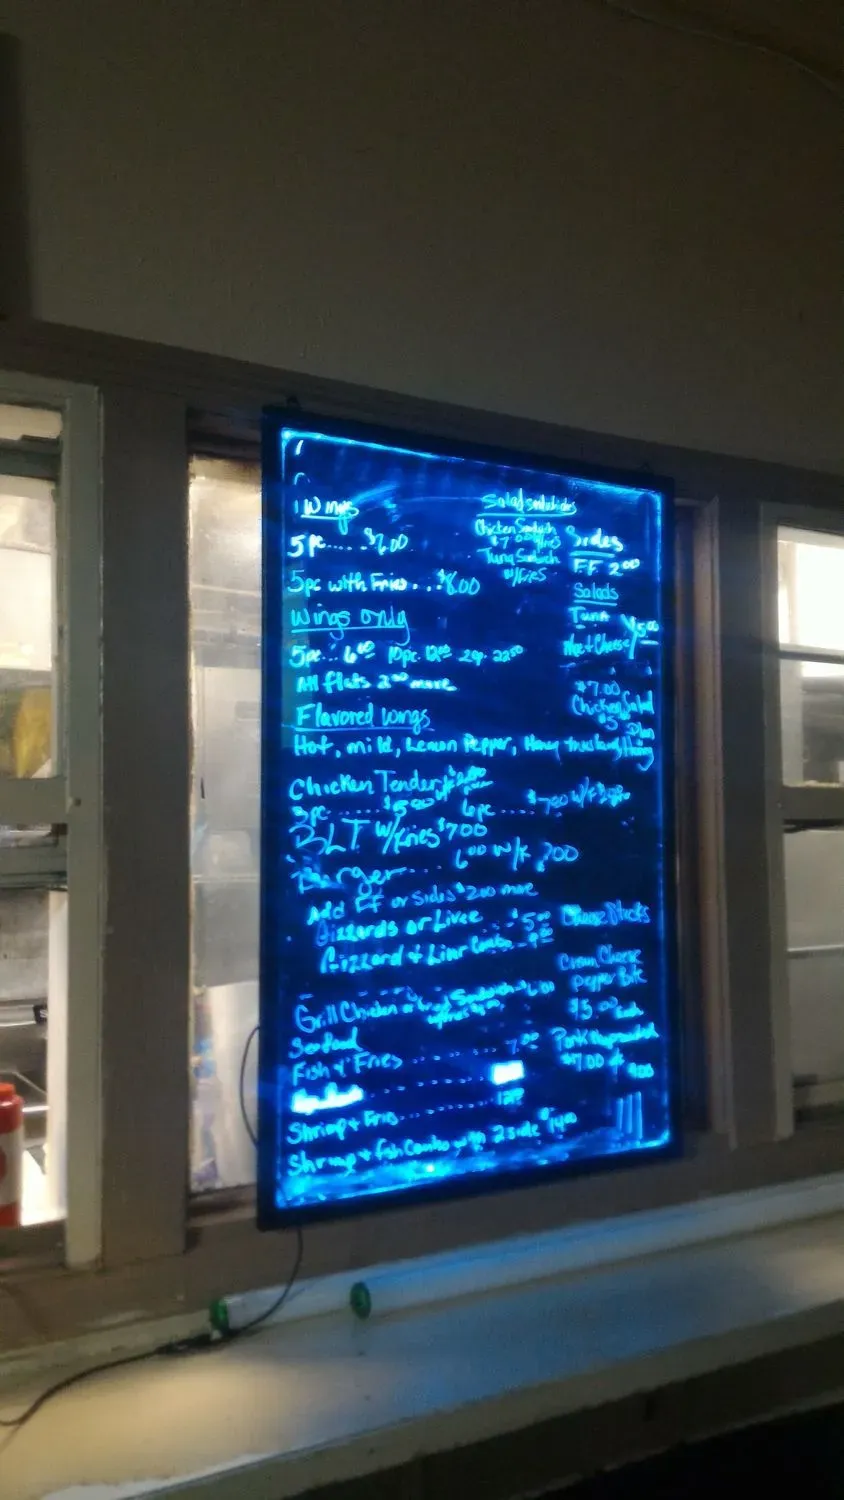 Wings
5pc..... $6.00
5pc with Fries ... $8.00
Wings only
5pc... 6.00 10pc. 12.00 22.50
All flats 2.00 more
Flavored Wings
Hot, mild, Lemon Pepper, Honey
Chicken Tender
3pc ..... $5.00 6pc ..... $7.00
BLT w/fries $7.00
Burger... 6.00 w/F
Add FF or Sides $2.00 more
Gizzards or Liver ... $5.00
Gizzard + Liver Combo
Grill Chicken or Sandwich
Seafood
Fish + Fries ........ 7.00
Shrimp + Fries ........
Shrimp + fish Combo with 2 side $14.00
Salad sandwiches
Chicken Sandwich
$7.00 w/fries
Tuna Sandwich
w/fries
Sides
F.F. 2.00
Salads
Tuna
$7.00
Chicken Salad
$5
Cheese Sticks
Cream Cheese
Pepper
$5.00 Each
Pork
$7.00